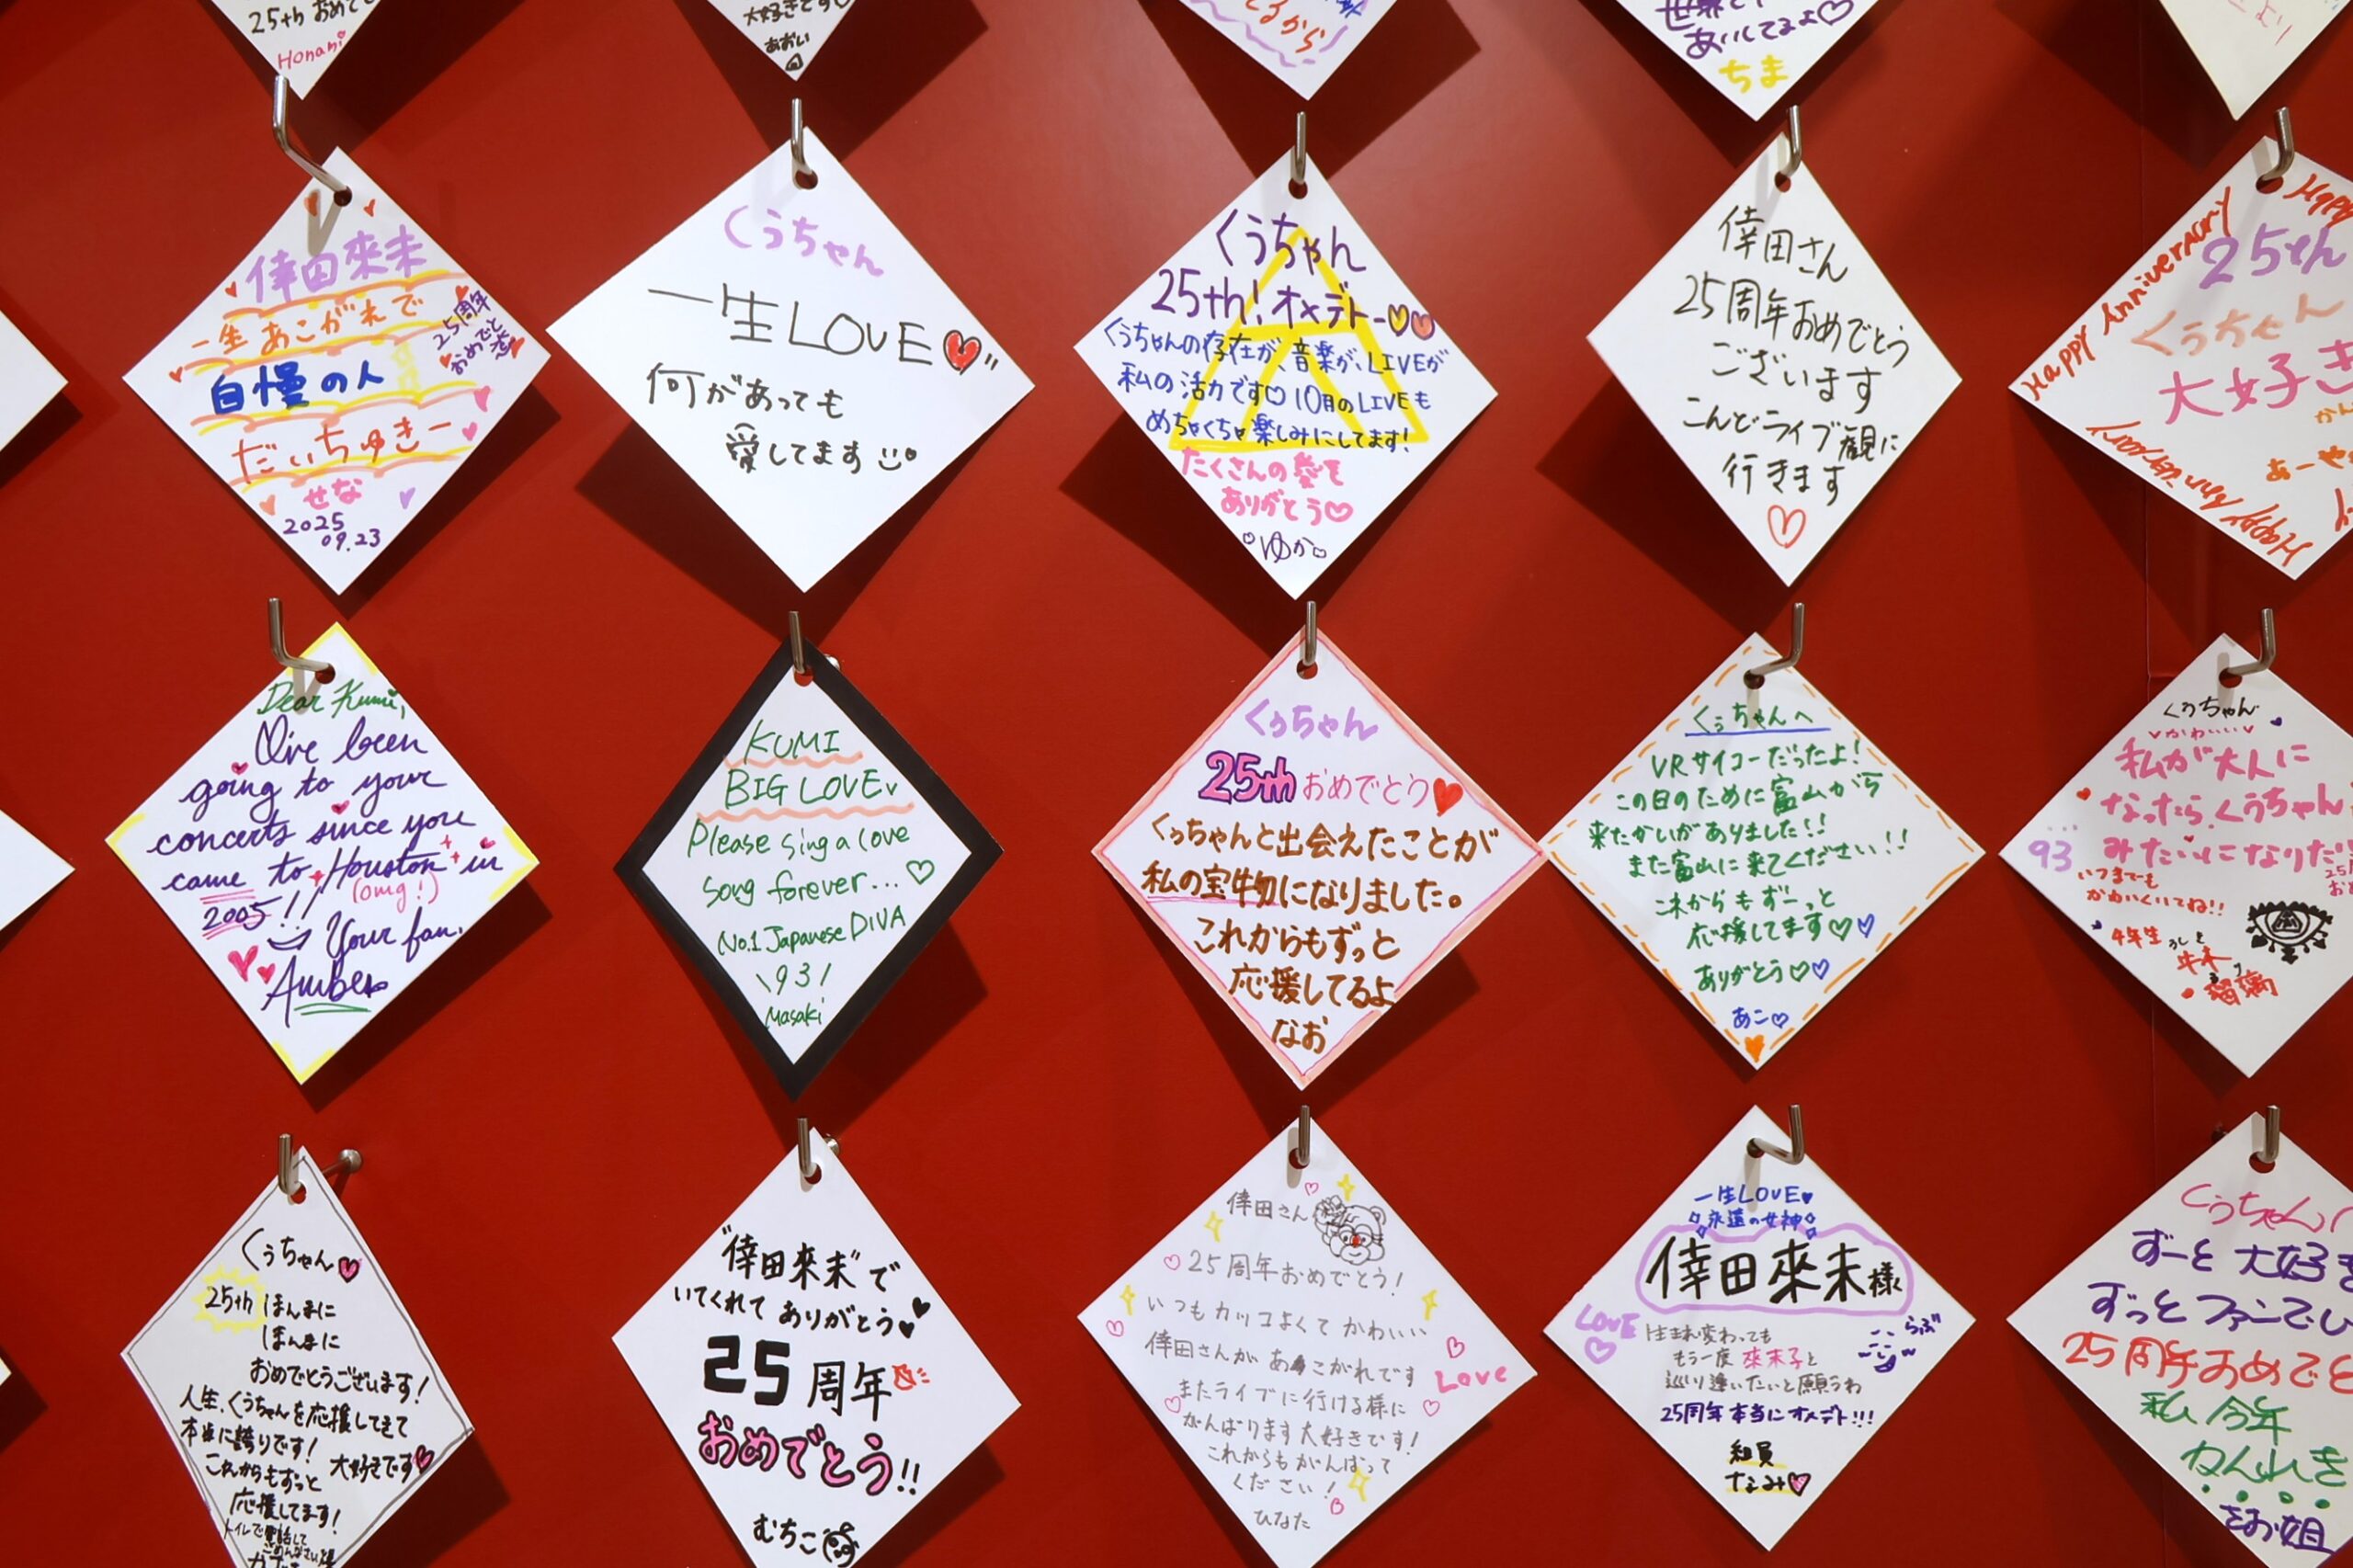 25th おめで
Honami
大好きです♡
あおい
てるから
あいしてるよ♡
ちま
より
倖田來未
一生あこがれで
自慢の人
だいちゅきー
せな
2025
09.23
25周年
おめでと
くうちゃん
一生LOVE
何があっても
愛してます
くうちゃん
25th!オメデトー
くうちゃんの存在が、音楽が、LIVEが
私の活力です♡10月のLIVEも
めちゃくちゃ楽しみにしてます!
たくさんの愛を
ありがとう♡
ゆか
倖田さん
25周年おめでとう
ございます
こんどライブ観に
行きます
Happy Anniversary
Happy
25th
くうちゃん
大好き
あーや
Happy Anniversary
Dear Kumi,
I've been
going to your
concerts since you
came to Houston in
2005!! (omg!)
Your fan,
Amber
KUMI
BIG LOVE
Please sing a love
song forever...♡
No.1 Japanese DIVA
\93/
Masaki
くぅちゃん
25th おめでとう
くぅちゃんと出会えたことが
私の宝物になりました。
これからもずっと
応援してるよ
なお
くぅちゃんへ
VRサイコーだったよ!
この日のために富山から
来たかいがありました!!
また富山に来てください!!
これからもずーっと
応援してます♡♡
ありがとう♡♡
あこ♡
くぅちゃん
かわいい
私が大人に
なったら、くうちゃん
みたいになりたい
93
いつまでも
かわいくいてね!!
4年生
瑠璃
くぅちゃん
25th ほんまに
ほんまに
おめでとうございます!
人生、くぅちゃんを応援してきて
本当に誇りです!
大好きです
これからもずっと
応援してます!
"倖田來未"で
いてくれて ありがとう
25周年
おめでとう!!
むちこ
倖田さん
25周年おめでとう!
いつもカッコよくてかわいい
倖田さんがあこがれです
Love
またライブに行ける様に
がんばります大好きです!
これからもがんばって
ください!
ひなた
一生LOVE
永遠の女神
倖田來未様
LOVE
生まれ変わっても
もう一度 來未子と
巡り逢いたいと願うわ
らぶ
25周年本当にオメデト!!!
組員
なみ
くぅちゃん
ずーと大好き
ずっとファンでい
25周年おめでと
私 今年
かんれき